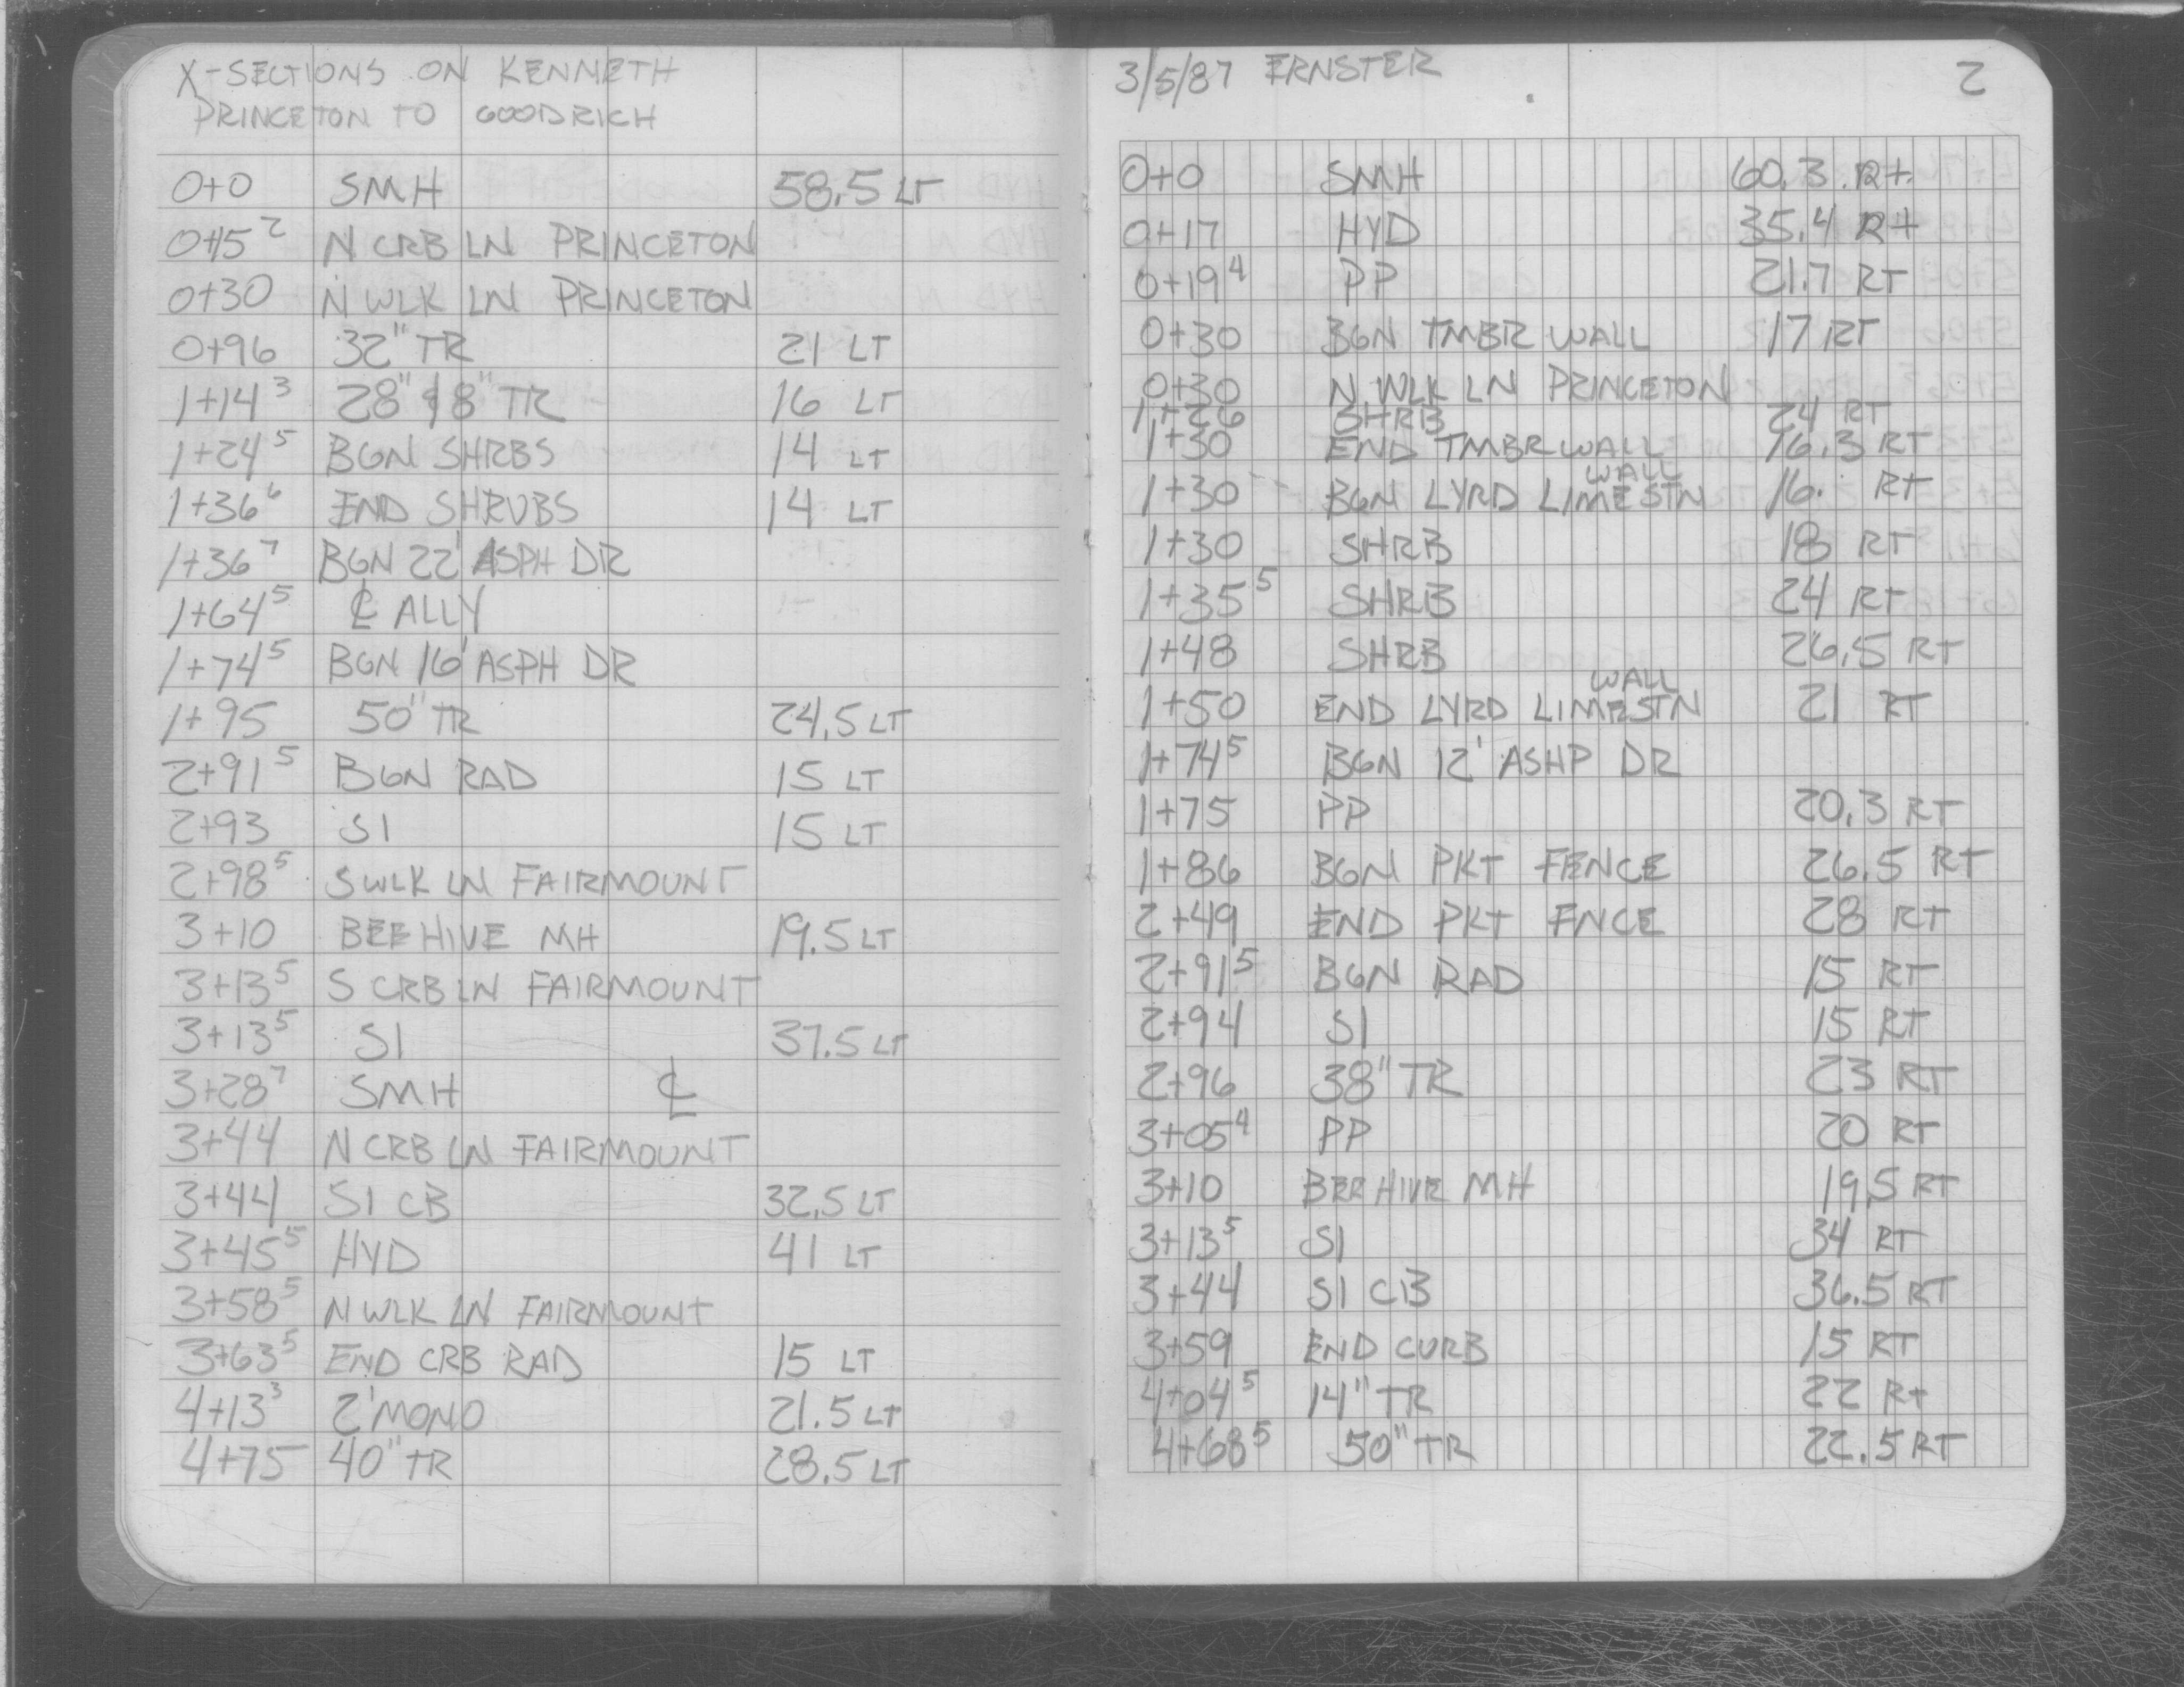 X-SECTIONS ON KENNETH
PRINCETON TO GOODRICH
0+0 SMH 58.5 LT
0+15² N CRB LN PRINCETON
0+30 N WLK LN PRINCETON
0+96 32" TR 21 LT
1+14³ 28" & 18" TR 16 LT
1+24⁵ BGN SHRBS 14 LT
1+36⁶ END SHRUBS 14 LT
1+36⁷ BGN 22' ASPH DR
1+64⁵ ℄ ALLY
1+74⁵ BGN 16' ASPH DR
1+95 50" TR 24.5 LT
2+91⁵ BGN RAD 15 LT
2+93 SI 15 LT
2+98⁵ S WLK LN FAIRMOUNT
3+10 BEEHIVE MH 19.5 LT
3+13⁵ S CRB LN FAIRMOUNT
3+13⁵ SI 37.5 LT
3+28⁷ SMH ℄
3+44 N CRB LN FAIRMOUNT
3+44 SI CB 32.5 LT
3+45⁵ HYD 41 LT
3+58⁵ N WLK LN FAIRMOUNT
3+63⁵ END CRB RAD 15 LT
4+13³ 2' MONO 21.5 LT
4+75 40" TR 28.5 LT
3/5/87 ERNSTER 2
0+0 SMH 60.3 Rt.
0+17 HYD 35.4 Rt
0+19⁴ PP 21.7 RT
0+30 BGN TMBR WALL 17 RT
0+30 N. WLK LN PRINCETON
1+26 SHRB 24 RT
1+30 END TMBR WALL 16.3 RT
1+30 BGN LYRD LIMESTN WALL 16. Rt
1+30 SHRB 18 RT
1+35⁵ SHRB 24 RT
1+48 SHRB 26.5 RT
1+50 END LYRD LIMESTN WALL 21 RT
1+74⁵ BGN 12' ASHP DR
1+75 PP 20.3 RT
1+86 BGN PKT FENCE 26.5 RT
2+49 END PKT FNCE 28 RT
2+91⁵ BGN RAD 15 RT
2+94 SI 15 RT
2+96 38" TR 23 RT
3+05⁴ PP 20 RT
3+10 BEEHIVE MH 19.5 RT
3+13⁵ SI 34 RT
3+44 SI CB 36.5 RT
3+59 END CURB 15 RT
4+04⁵ 14" TR 22 Rt
4+68⁵ 50" TR 22.5 RT